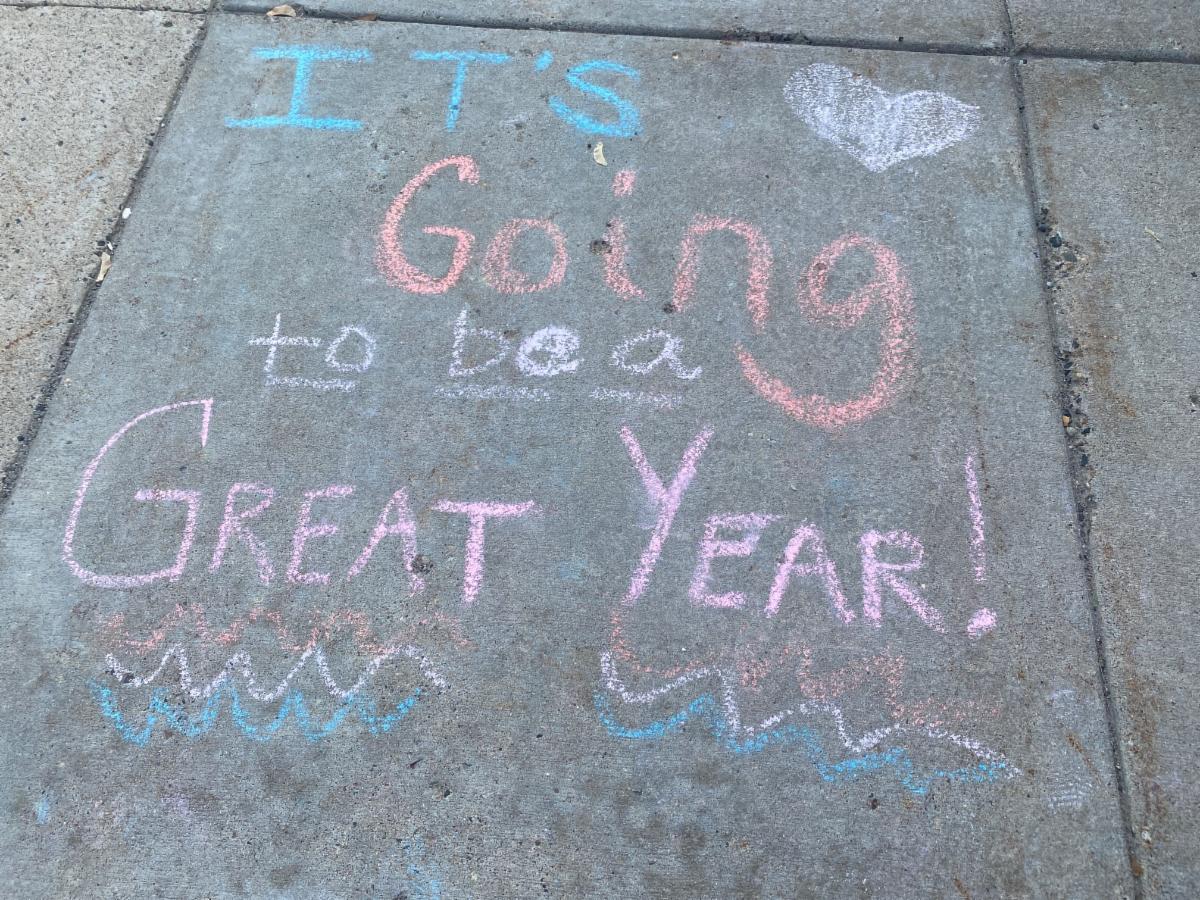 IT'S
Going
to be a
GREAT YEAR!